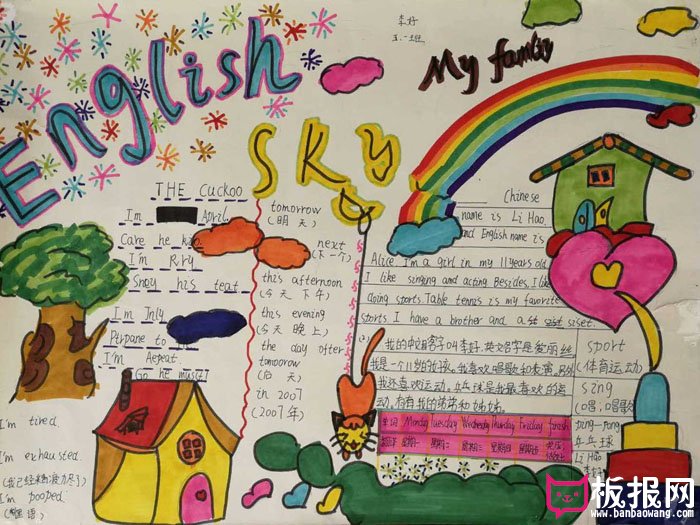 李好
五.一班
English
sky
My family
THE Cuckoo
Im April
Care he
I'm
his
Im Inly
I'm Aepeat
Go he musт!
tomorrow
(明天)
next
(下一个)
this afternoon
(今天下午)
this evening
(今天晚上)
the day ofter
tomoorow
(后天)
in 2007
(2007年)
Chinese
name is Li Hao
and English name is
Alice. I'm a girl in my 11 years old
I like singing and acting Besides, I like
doing storts. Table tennis is my favorite
storts. I have a brother and a siset.
我的中文名字叫李好,英文名字是爱丽丝
我是一个11岁的女孩,我喜欢唱歌和表演,另外
我还喜欢运动,乒乓球是我最喜欢的运
动,有我的弟弟和姊姊。
单词 Monday Tuesday Wednesday Thursday Friday finish
星期一 星期二 星期三 星期四 星期五
sport
(体育运动)
sing
(唱,唱歌)
ping-pong
乒乓球
Li Hao
李好
I'm tired.
I'm exhausted.
I'm pooped.
板报网
www.banbaowang.com